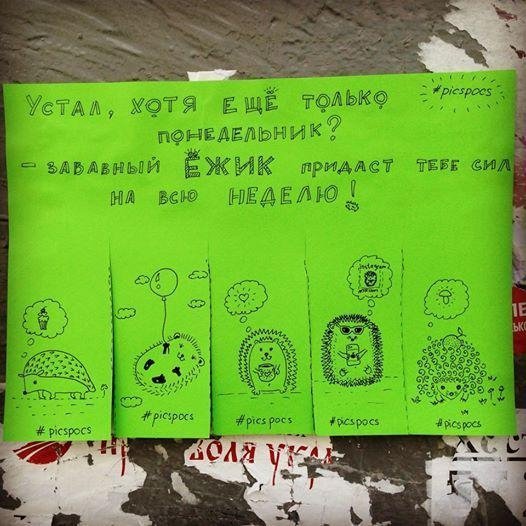 #picspocs
Устал, хотя ещё только
понедельник?
- забавный ёжик придаст тебе сил
на всю неделю!
instagram
#picspocs
#picspocs
#picspocs
#picspocs
#picspocs